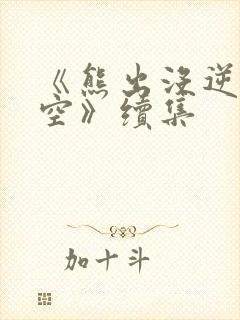 《熊出没逆
空》續集
加十斗